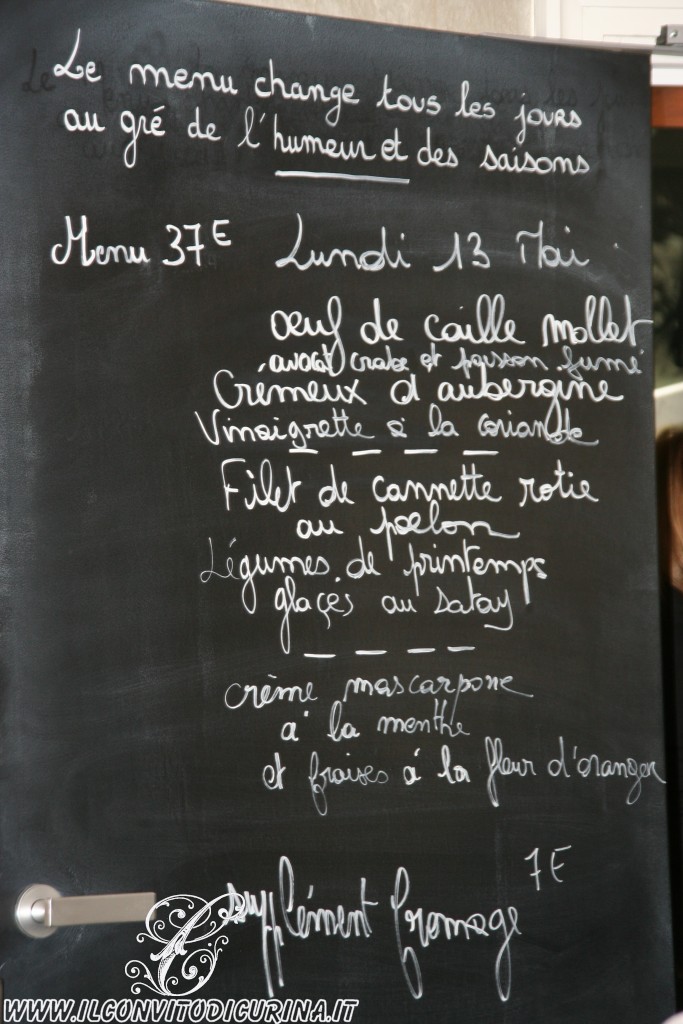 Le menu change tous les jours
au gré de l'humeur et des saisons
Menu 37E Lundi 13 Mai
œuf de caille mollet
avocat crabe et poisson fumé
Crémeux d'aubergine
Vinaigrette à la coriandre
Filet de cannette rotie
au poelon
Légumes de printemps
glaçés au satay
crème mascarpone
à la menthe
et fraises à la fleur d'oranger
supplément fromage 7E
WWW.ILCONVITODICURINA.IT